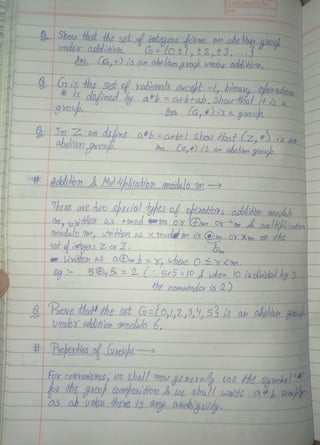 Q Show that the set of integers forms an abelian group
under addition. G = {0, ±1, ±2, ±3, ... }
Ans (G,+) is an abelian group under addition.
Q G is the set of rationals except -1, binary operation
* is defined by a*b = a+b+ab. Show that it is a
group. Ans (G,*) is a group.
Q In Z we define a*b = a+b+1 show that (Z,*) is an
abelian group. Ans (Z,*) is an abelian group.
# Addition & Multiplication modulo m →
There are two special types of operations addition modulo
m, written as +mod m or ⊕m or +m & multiplication
modulo m, written as × mod m or ⊗m or ×m on the
set of integers Z or I.
Written as a⊕b = r, where 0 ≤ r < m.
eg :- 5⊕5 = 2 (∵ 5+5=10 & when 10 is divided by 8
the remainder is 2)
Q Prove that the set G = {0,1,2,3,4,5} is an abelian group
under addition modulo 6.
# Properties of Groups →
For convenience, we shall now generally use the symbol '*'
for the group composition & we shall write a*b simply
as ab unless there is any ambiguity.